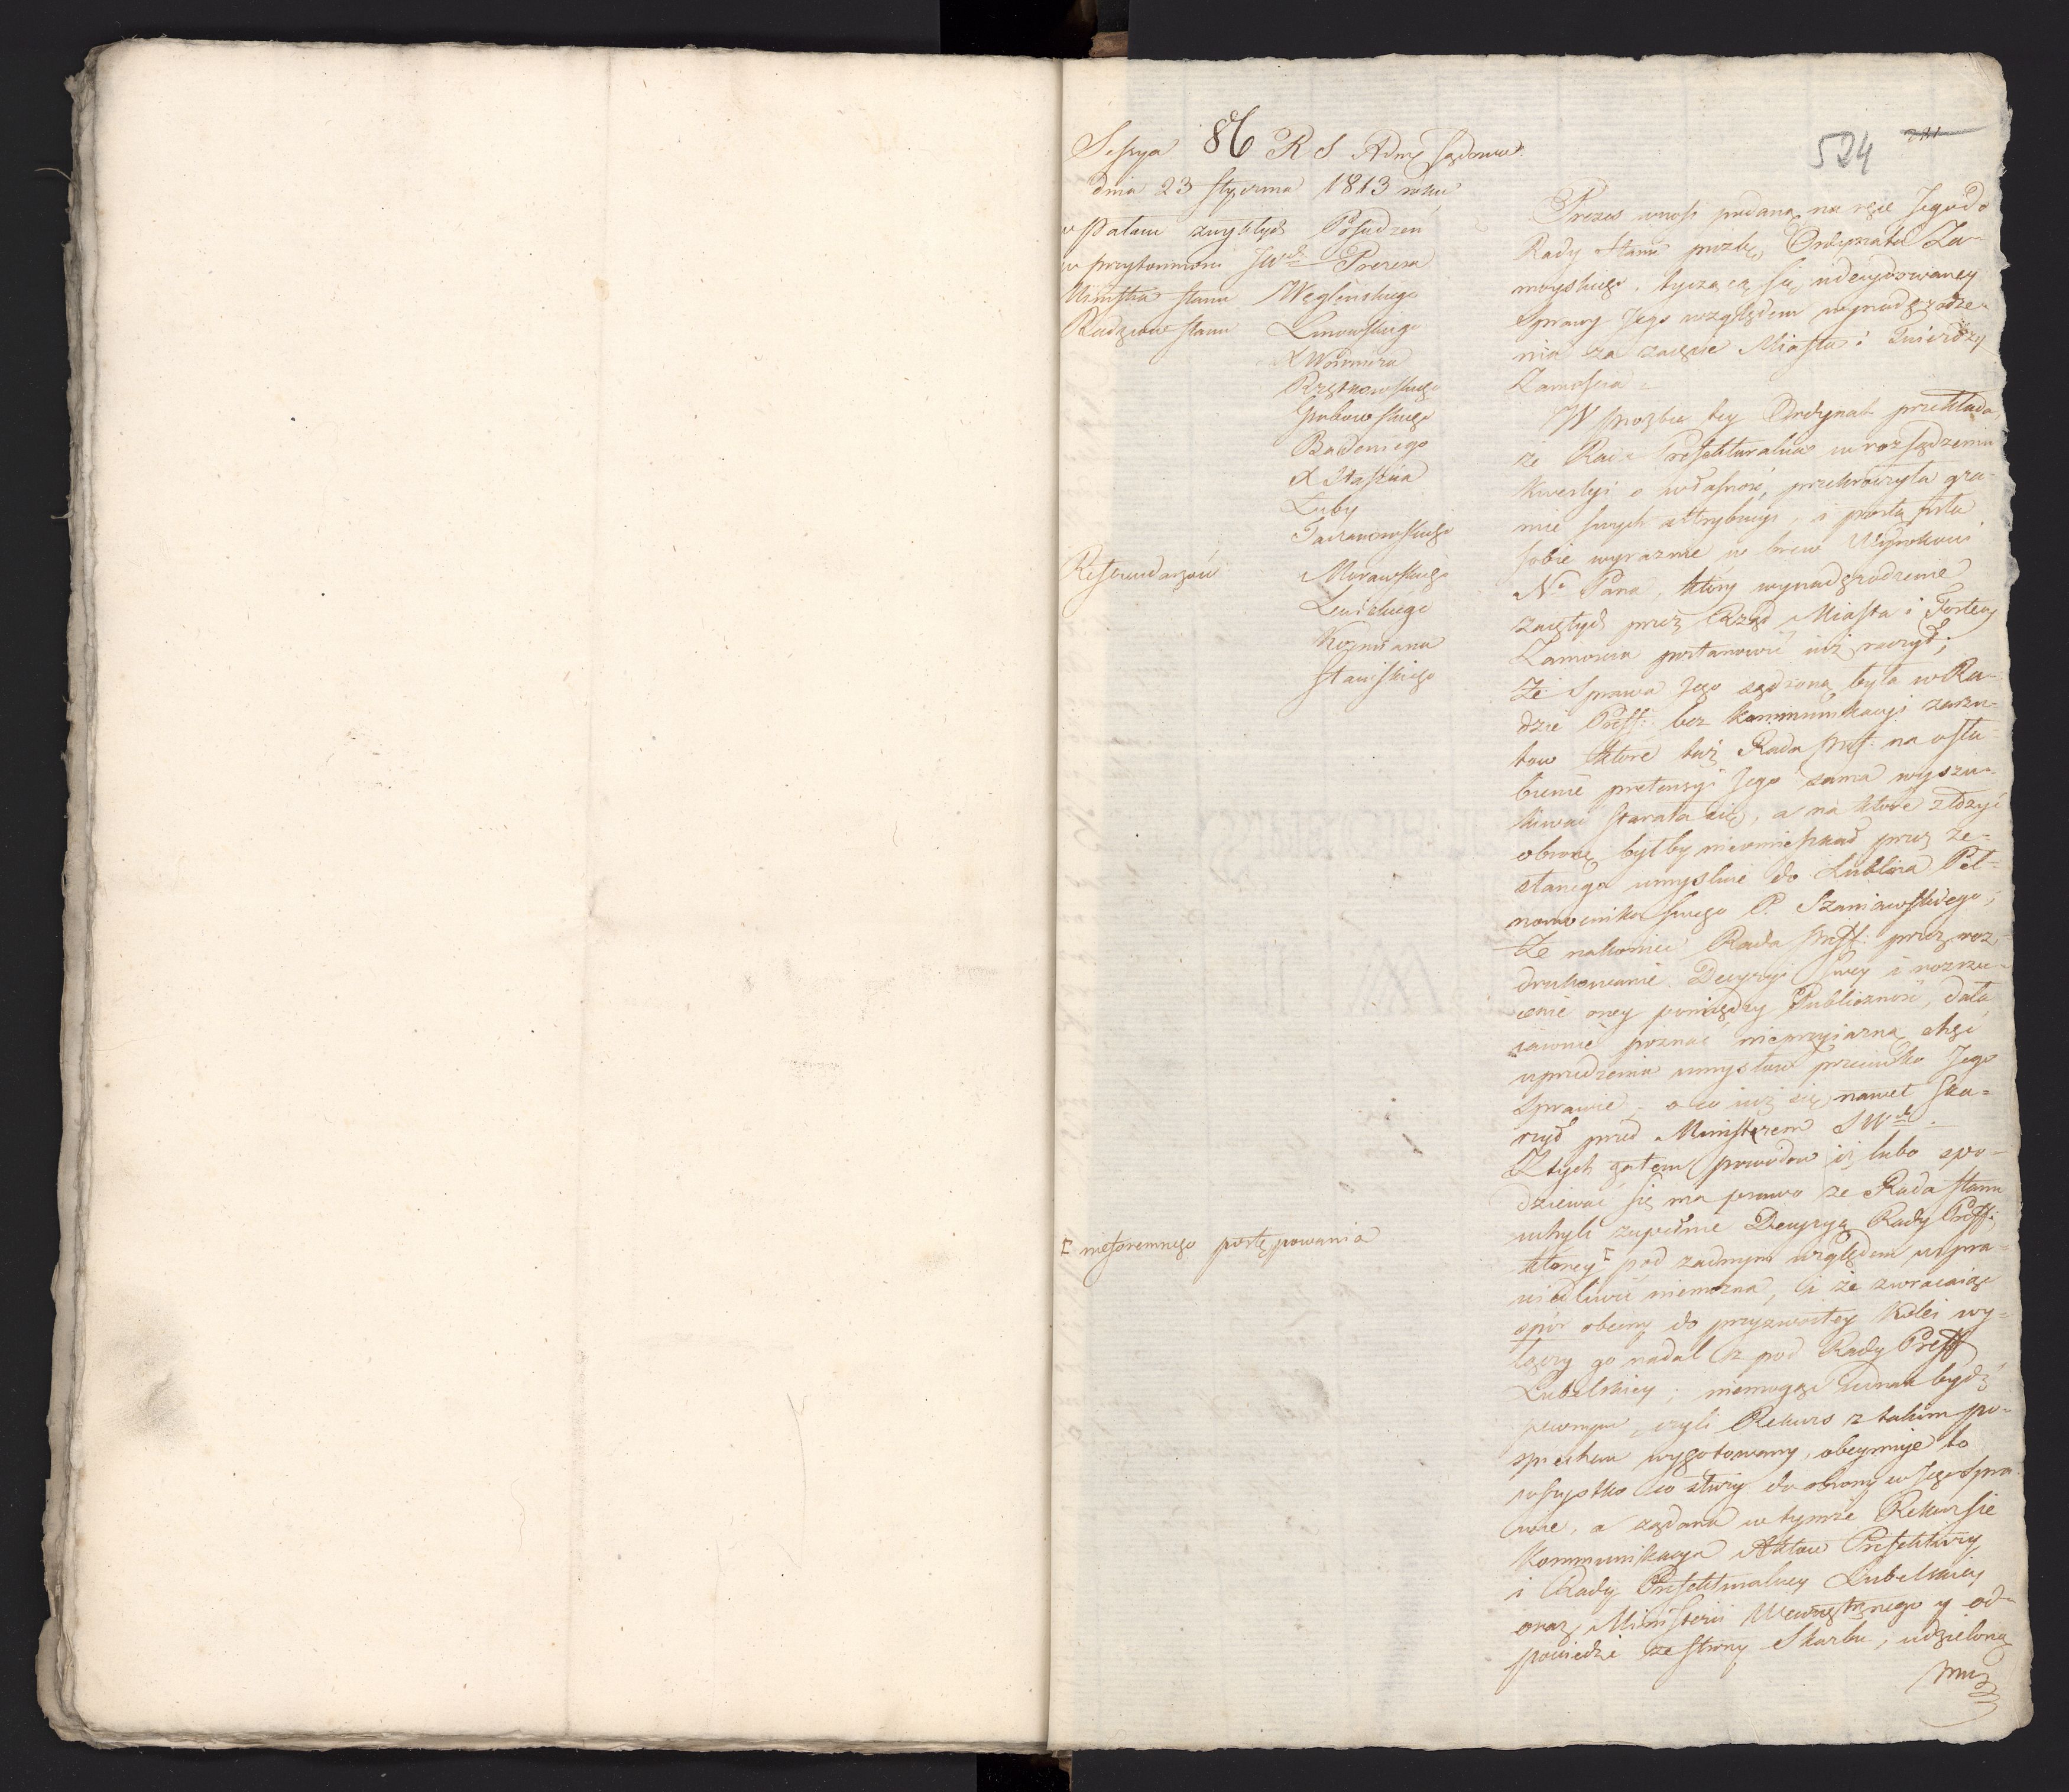 524
Sessya 86 R S Adm Sądowa
dnia 23 Stycznia 1813 roku
w Pałacu zwykłych Posiedzeń
w przytomności JWch Prezesa
Ministra Stanu Węgleńskiego
Radzców Stanu Linowskiego
X Woronicza
Rzętkowskiego
Grabowskiego
Badeniego
X Staszica
Łuby
Tarnowskiego
Referendarzów Morawskiego
Lewickiego
Koźmiana
Stawiskiego
Prezes wnosi podaną na ręce Jego do
Rady Stanu prozbę Ordynata Za-
moyskiego, tyczącą się udecydowaney
Sprawy Jego względem wynadgrodze-
nia za zajęcie Miasta i Twierdzy
Zamościa.
W prozbie tey Ordynat przekłada
że Rada Prefekturalna w rozsądzeniu
kwestyi o własność, przekroczyła gra-
nice swych attrybucyi, i postąpiła
sobie wyraznie w brew Wyrokowi
No Pana, który wynadgrodzenie
zajętych przez Rząd Miasta i Fortecy
Zamościa postanowić już raczył;
Że Sprawa Jego sądzoną była w Ra-
dzie Preff: bez kommunikacyi zarzu-
tow które taż Rada Preff: na osła-
bienie pretensyi Jego sama wyszu-
kiwać starała się, a na które złożyć
obronę byłby nieomieszkał przez ze-
słanego umyslnie do Lublina Peł-
nomocnika swego P. Szaniawskiego;
Że nakoniec Rada Preff: przez roz-
drukowanie Decyzyi swey i rozrzu-
cenie oney pomiędzy Publiczność, dała
jawnie poznać nieprzyjazną chęć
uprzedzenia umysłow przeciwko Jego
Sprawie, o co już się nawet ska-
rżył przed Ministrem SWch.
Z tych zatem powodow iż lubo spo-
dziewać się ma prawo że Rada Stanu
uchyli zupełnie Decyzyą Rady Preff:
ktorey [ pod żadnym względem uspra-
wiedliwić niemożna, i że zwracając
[ nieforemnego postępowania
spór obecny do przyzwoitey kolei wy-
łączy go nadal z pod Rady Preff
Lubelskiey; niemogąc jednak bydź
pewnym, czyli Rekurs z takim po-
spiechem wygotowany, obeymuje to
wszystko co służy do obrony w Jego spra-
wie, a żądana w tymże Rekursie
Kommunikacya Aktow Prefektury
i Rady Prefekturalney Lubelskiey
oraz Ministerii Wewnętrznego y od-
powiedzi ze strony Skarbu, udzieloną
mu